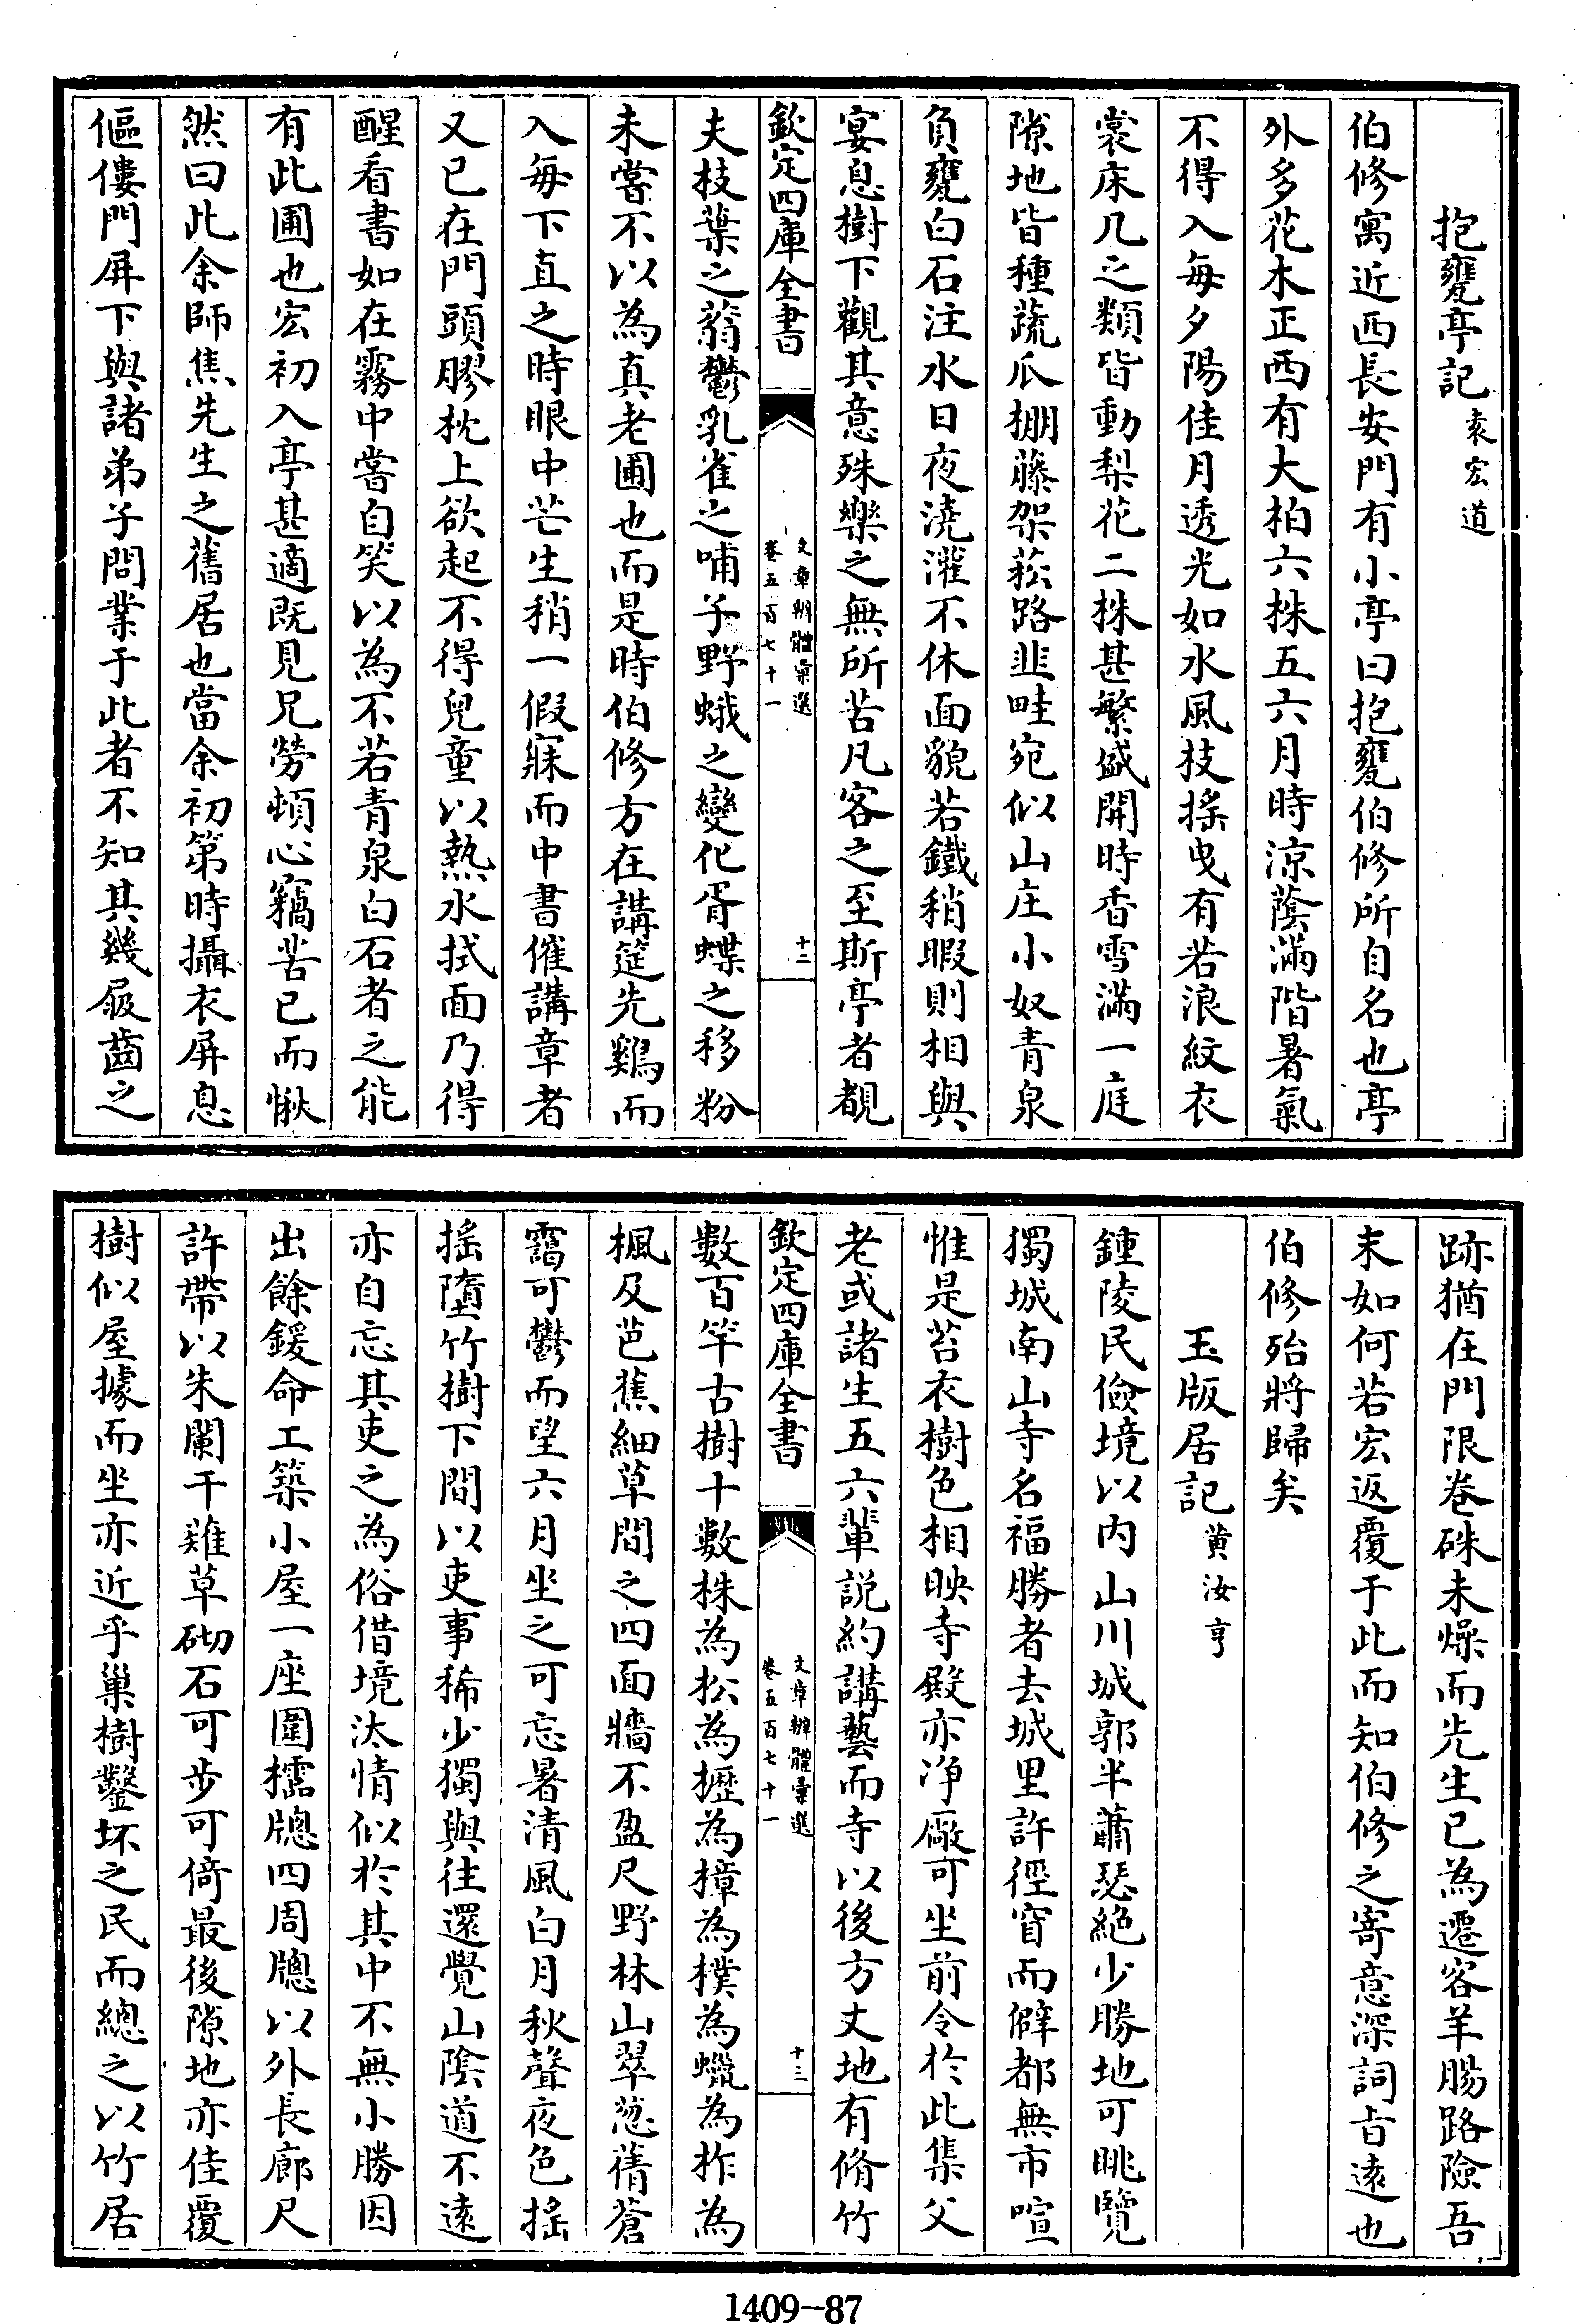 抱甕亭記袁宏道
伯修寓近西長安門有小亭曰抱甕伯修所自名也亭
外多花木正西有大柏六株五六月時涼蔭滿階暑氣
不得入每夕陽佳月透光如水風枝搖曳有若浪紋衣
裳床几之類皆動梨花二株甚繁盛開時香雪滿一庭
隙地皆種蔬瓜棚藤架菘路韭畦宛似山庄小奴青泉
負甕白石注水日夜澆灌不休面貌若鐵稍暇則相與
宴息樹下觀其意殊樂之無所苦凡客之至斯亭者覩
欽定四庫全書
文章辨體彙選
卷五百七十一
十二
夫枝葉之蓊鬱乳雀之哺子野蛾之變化胥蝶之移粉
未嘗不以為真老圃也而是時伯修方在講筵先鷄而
入每下直之時眼中芒生稍一假寐而中書催講章者
又已在門頭膠枕上欲起不得兒童以熱水拭面乃得
醒看書如在霧中嘗自笑以為不若青泉白石者之能
有此圃也宏初入亭甚適既見兄勞頓心竊苦已而愀
然曰此余師焦先生之舊居也當余初第時攝衣屏息
傴僂門屏下與諸弟子問業于此者不知其幾屐齒之
跡猶在門限卷硃未燥而先生已為遷客羊腸路險吾
末如何若宏返覆于此而知伯修之寄意深詞旨遠也
伯修殆將歸矣
玉版居記黃汝亨
鍾陵民儉境以內山川城郭半蕭瑟絕少勝地可眺覽
獨城南山寺名福勝者去城里許徑窅而僻都無市喧
惟是苔衣樹色相映寺殿亦净廠可坐前令於此集父
老或諸生五六輩説約講藝而寺以後方丈地有脩竹
欽定四庫全書
文章辨體彙選
卷五百七十一
十三
數百竿古樹十數株為松為櫪為樟為樸為蠟為柞為
楓及芭蕉細草間之四面牆不盈尺野林山翠葱蒨蒼
靄可鬱而望六月坐之可忘暑清風白月秋聲夜色搖
搖墮竹樹下間以吏事稀少獨與往還覺山陰道不遠
亦自忘其吏之為俗借境汰情似於其中不無小勝因
出餘鍰命工築小屋一座圍櫺牎四周牎以外長廊尺
許帶以朱闌干雜草砌石可步可倚最後隙地亦佳覆
樹似屋據而坐亦近乎巢樹鑿坏之民而總之以竹居
1409-87